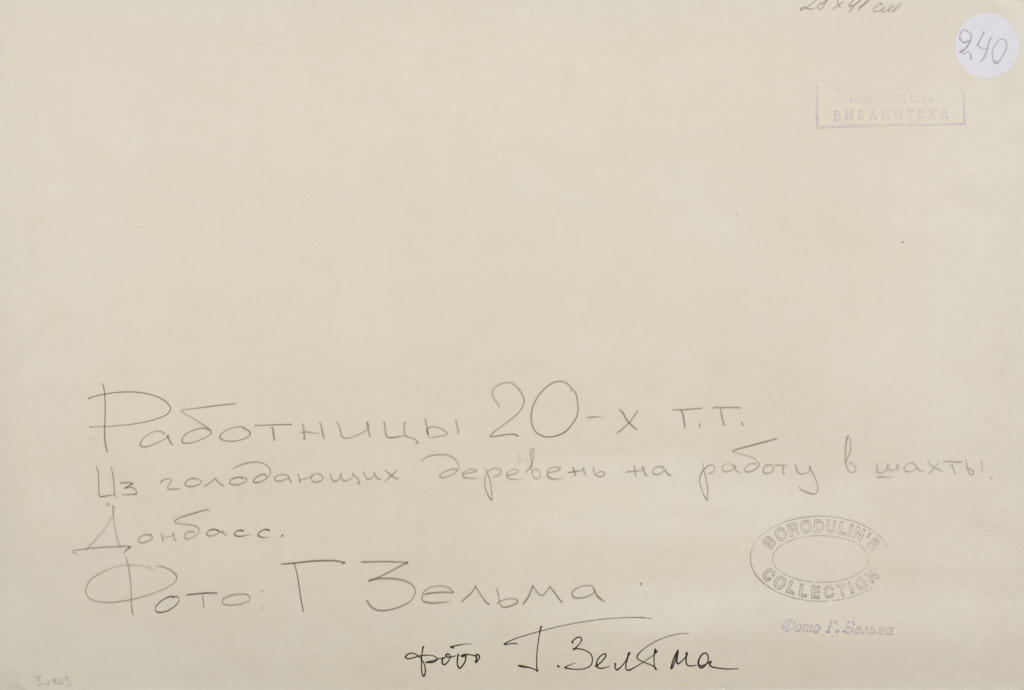 28 x 41 см
240
БИБЛИОТЕКА
Работницы 20-х т.т.
Из голодающих деревень на работу в шахты.
Донбасс.
Фото: Г. Зельма
BORODULIN'S
COLLECTION
Фото Г. Зельма
фото Г. Зельма